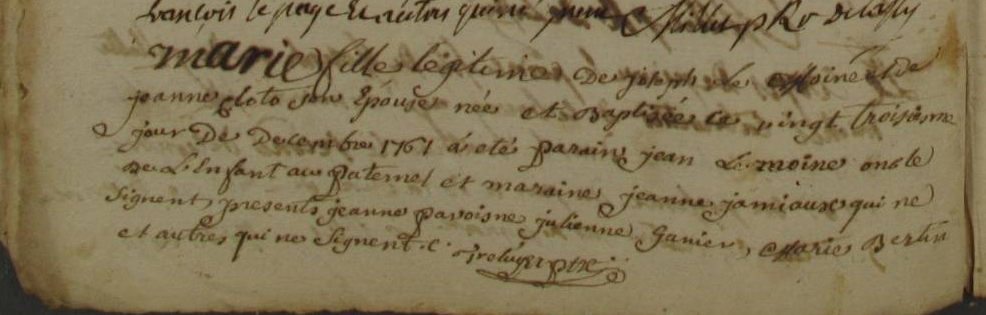 françois le page et autres qui ne signent
marie fille légitime De joseph le Moine et de
jeanne gloto son Epouse née et Baptisée le vingt troisieme
jour De Decembre 1761 á eté parain jean Le moine oncle
De L'Enfant au paternel et maraine jeanne jamiaux qui ne
signent, presents jeanne pavoisne julienne Ganier, Marie Bertin
et autres qui ne signent.